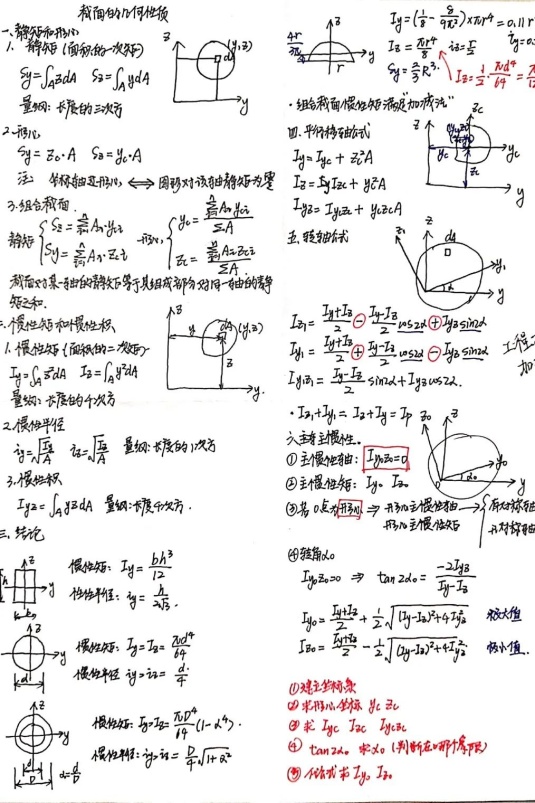 截面的几何性质
一、静矩和形心
1. 静矩(面积的一次矩)
Sy=∫_A zdA Sz=∫_A ydA
量纲:长度的三次方
z
dA
(y,z)
y
2. 形心
Sy=Zc·A Sz=yc·A
注 坐标轴过形心 ⟺ 图形对该轴静矩为零
3. 组合截面.
静矩 { Sz=Σ Ai·yci
Sy=Σ Ai·Zci
形心 { yc=ΣAi yci/ΣA
Zc=ΣAi Zci/ΣA
截面对某一轴的静矩等于其组成部分对同一轴的静
矩之和.
二、惯性矩和惯性积
1. 惯性矩(面积的二次矩)
Iy=∫_A z²dA Iz=∫_A y²dA
量纲:长度的4次方
z
y
dA
(y,z)
z
y
2. 惯性半径
iy=√(Iy/A) iz=√(Iz/A) 量纲:长度的1次方
3. 惯性积
Iyz=∫_A yzdA 量纲:长度4次方.
三、结论
z
h
y
b
惯性矩: Iy=bh³/12
惯性半径: iy=h/2√3.
z
y
d
惯性矩: Iy=Iz=πd⁴/64
惯性半径 iy=iz=d/4
z
y
d
D
α=d/D
惯性矩: Iy=Iz=πD⁴/64(1-α⁴).
惯性半径: iy=iz=D/4√(1+α²)
4r/3π
z
y
r
Iy=(1/8-8/9π²)×πr⁴=0.11r
Iz=πr⁴/8 iz=r/2
Sy=2/3R³.
Iz=1/2·πd⁴/64=
·组合截面惯性矩满足"加减法"
四、平行移轴公式
Iy=Iyc+Zc²A
Iz=Izc+yc²A
Iyz=Iyczc+yczcA
z
zc
yc
yc
zc
y
五、转轴公式
z
z₁
dA
y₁
α
y
Iz₁=(Iy+Iz)/2-(Iy-Iz)/2 cos2α+Iyz sin2α
Iy₁=(Iy+Iz)/2+(Iy-Iz)/2 cos2α-Iyz sin2α
Iy₁z₁=(Iy-Iz)/2 sin2α+Iyz cos2α.
·Iz₁+Iy₁=Iz+Iy=Ip
六、主惯性.
①主惯性轴: Iy₀z₀=0
②主惯性矩: Iy₀ Iz₀
③若0点为形心 ⇒ 形心主惯性轴
形心主惯性矩
z₀
z
y₀
α₀
y
④转角α₀
Iy₀z₀=0 ⇒ tan2α₀=-2Iyz/(Iy-Iz)
Iy₀=(Iy+Iz)/2+1/2√((Iy-Iz)²+4Iyz²) 极大值
Iz₀=(Iy+Iz)/2-1/2√((Iy-Iz)²+4Iyz²) 极小值.
①建立坐标系
②求形心坐标 yc zc
③求 Iyc Izc Iyczc
④ tan2α₀ 求α₀(判断在哪个象限)
⑤代公式求Iy₀ Iz₀